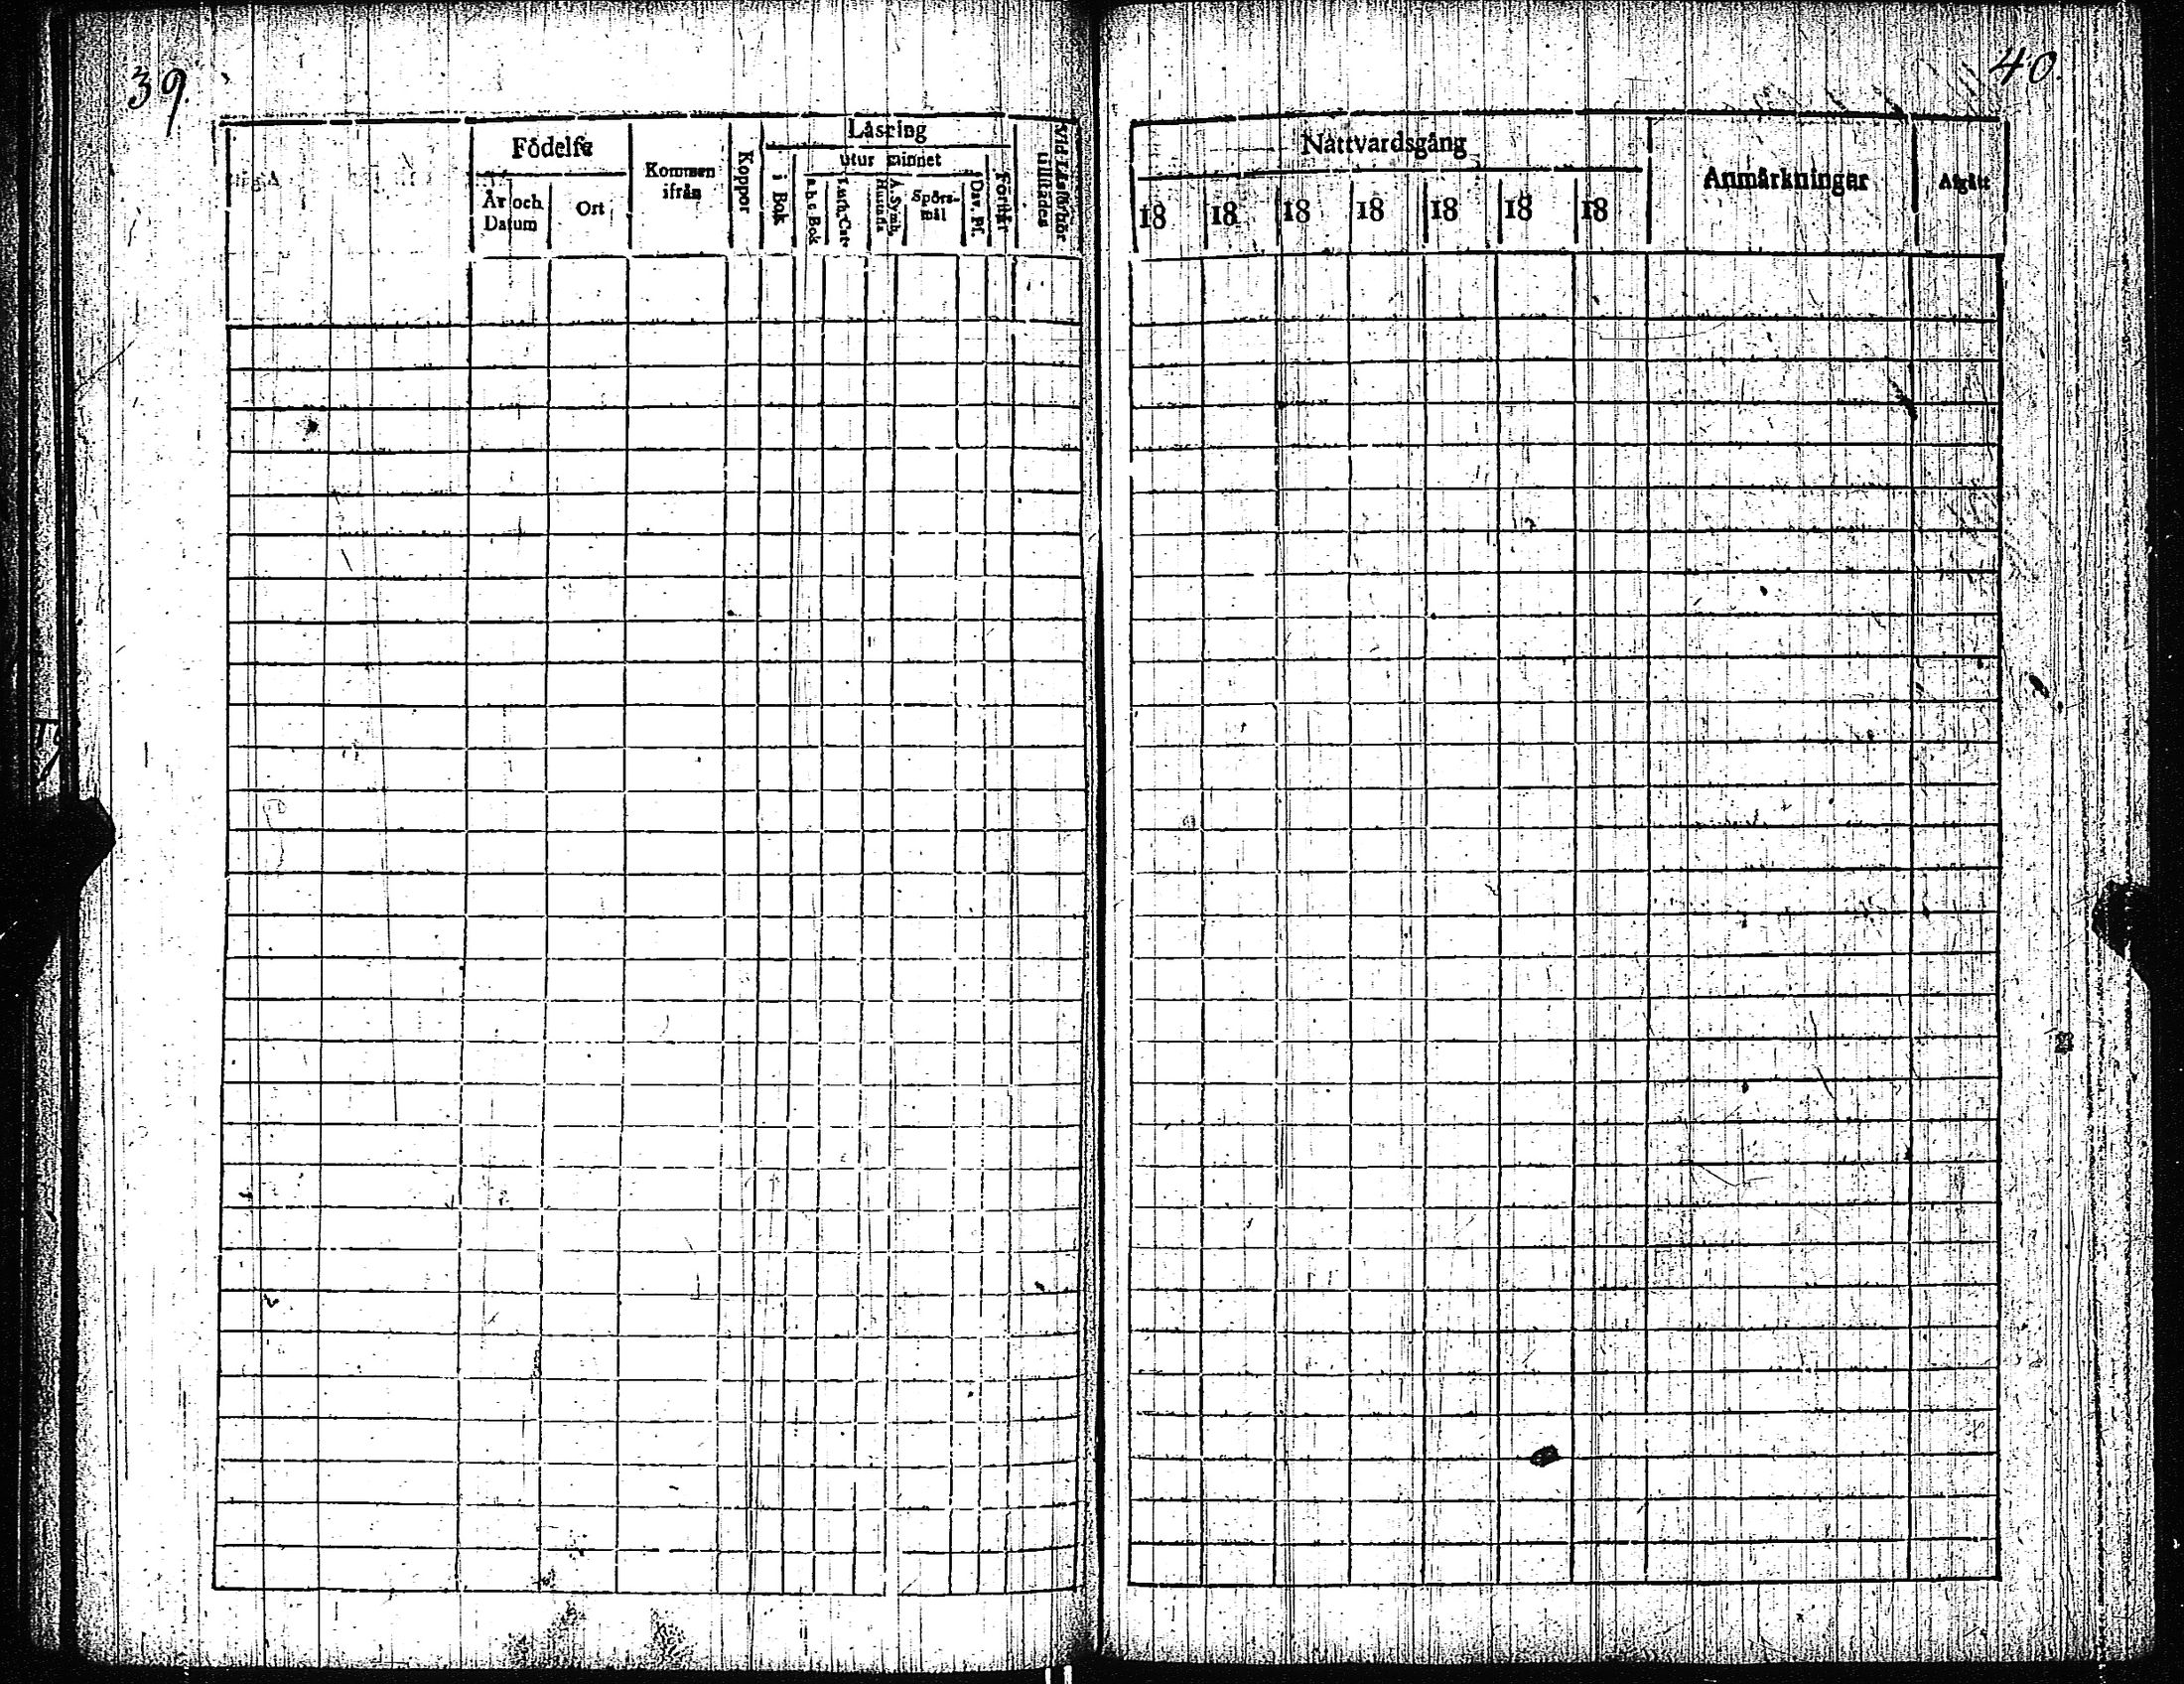 39.
Födelse
År och Datum
Ort
Kommen ifrån
Koppor
Läsning
i Bok
utur minnet
a.b.c Bok
Luth. Cat.
A. Symb.
Spörsmål
Dav. Ps.
Förstår
Vid Läsförhör tillstädes
40.
Nattvardsgång
18 18 18 18 18 18 18
Anmärkningar
Afgått